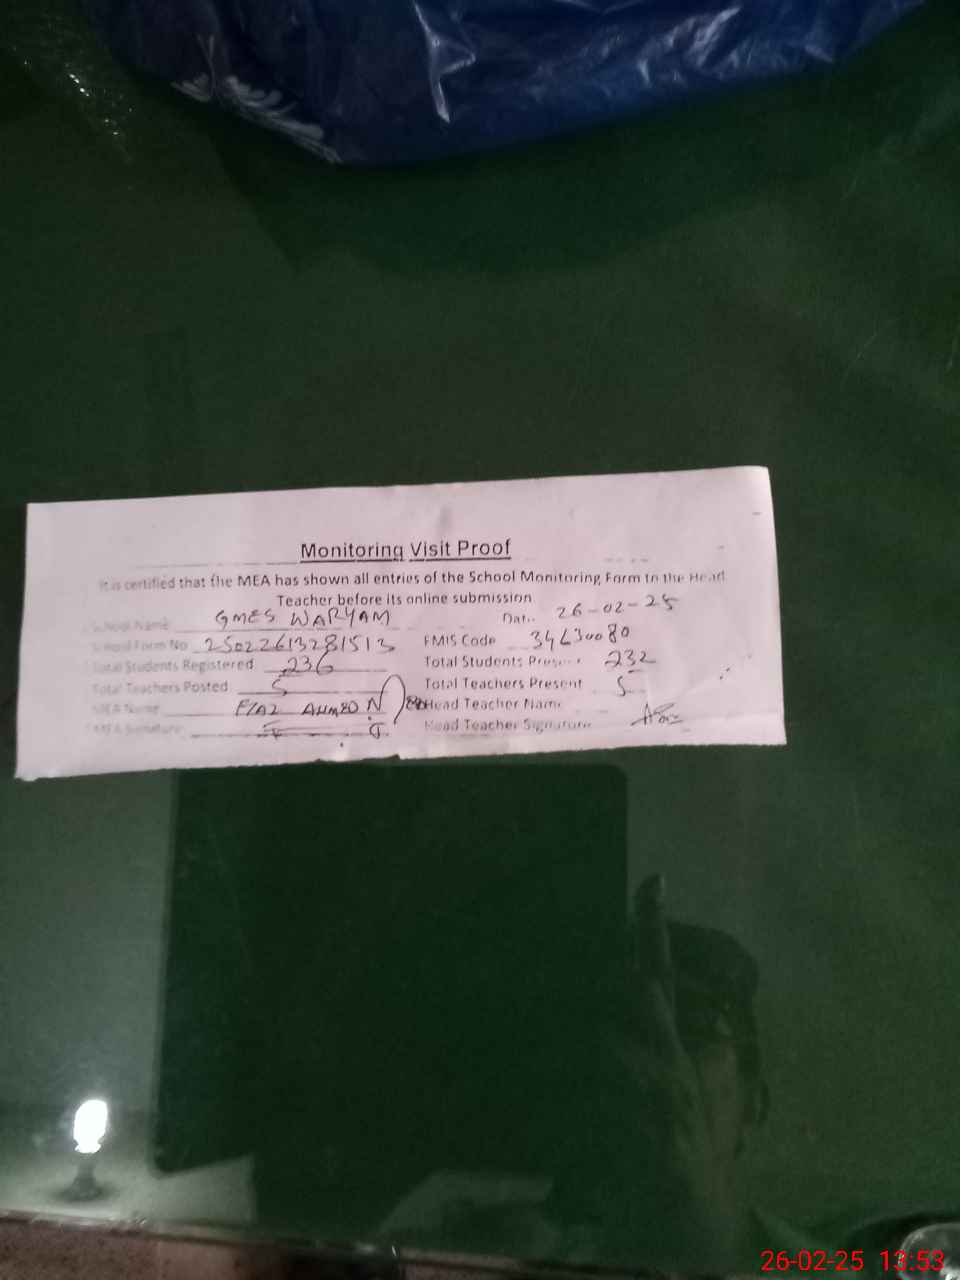 Monitoring Visit Proof
It is certified that the MEA has shown all entries of the School Monitoring Form to the Head
Teacher before its online submission
School Name GMES WARYAM Date 26-02-25
School Form No 25022613281513 EMIS Code
Total Students Registered 236 Total Students Present 232
Total Teachers Posted 5 Total Teachers Present 5
MEA Name AHMED Head Teacher Name
MEA Signature Head Teacher Signature
26-02-25 13:53